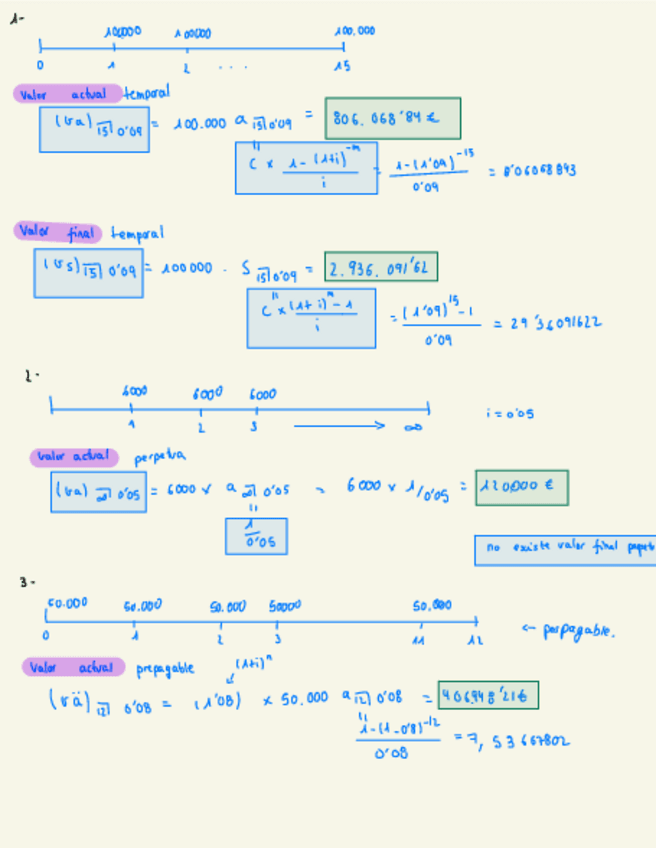 1-
100000 100000 100.000
0 1 2 ... 15
Valor actual temporal
(va) 15 0'09 = 100.000 a 15 0'09 = 806.068'84 €
C x 1-(1+i)^-n / i = 1-(1'09)^-15 / 0'09 = 8'06068843
Valor final temporal
(vs) 15 0'09 = 100000 . S 15 0'09 = 2.936.091'62
C x (1+i)^n - 1 / i = (1'09)^15 - 1 / 0'09 = 29'36091622
2-
6000 6000 6000
1 2 3 → ∞ i = 0'05
Valor actual perpetua
(va) ∞ 0'05 = 6000 x a ∞ 0'05 = 6000 x 1/0'05 = 120000 €
1 / 0'05
no existe valor final
3-
50.000 50.000 50.000 50000 50.000
0 1 2 3 11 12 ←
Valor actual prepagable (1+i)^n
(vä) 12 0'08 = (1'08) x 50.000 a 12 0'08 = 406948'21€
1-(1-0'8)^-12 / 0'08 = 7,53607802